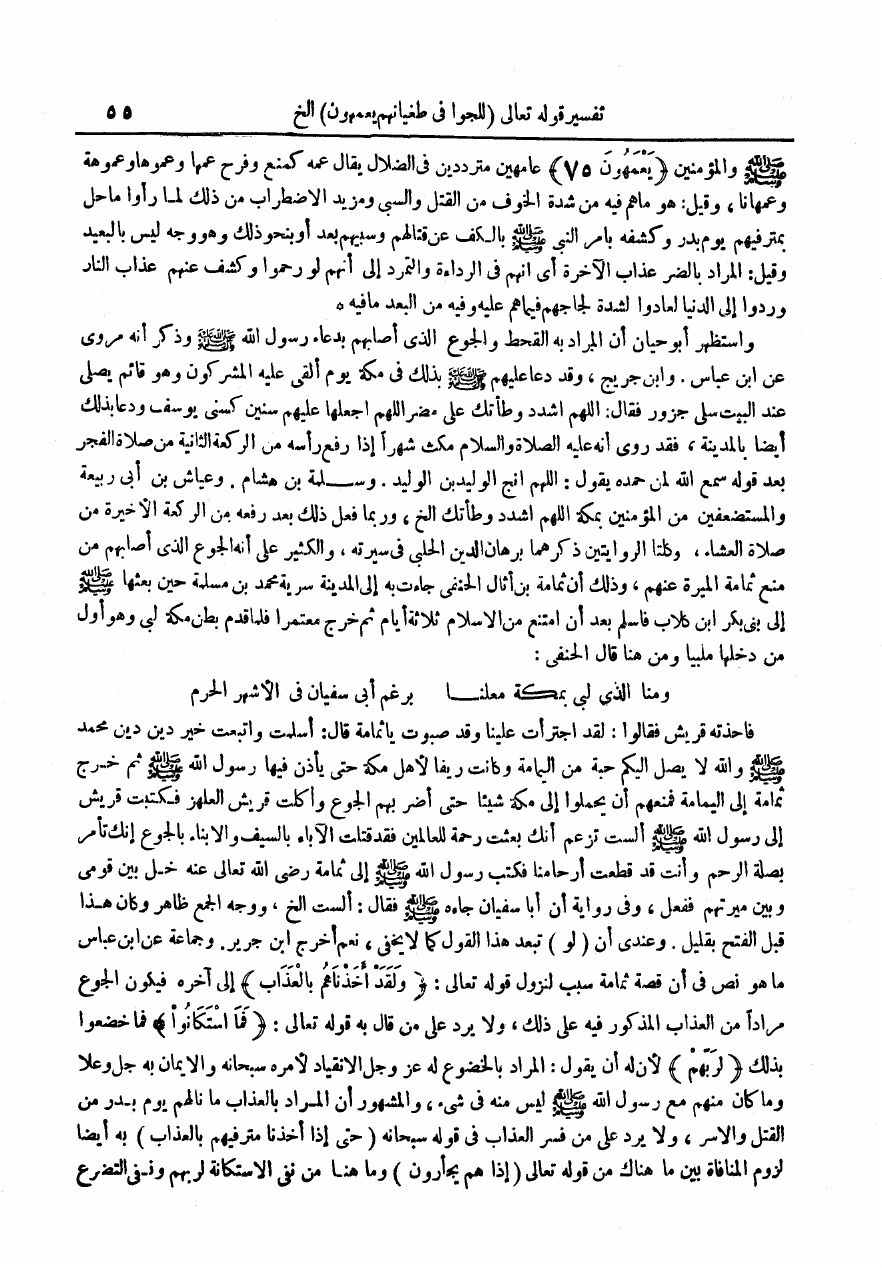 تفسير قوله تعالى (للجوا فى طغيانهم يعمهون) الخ ٥٥
ﷺ والمؤمنين ﴿ يَعْمَهُونَ ٧٥ ﴾ عامهين مترددين فى الضلال يقال عمه كمنع وفرح عمها وعموها وعموهة
وعمهانا ، وقيل: هو ماهم فيه من شدة الخوف من القتل والسبى ومزيد الاضطراب من ذلك لما رأوا ماحل
بمترفيهم يوم بدر وكشفه بامر النبى ﷺ بالكف عن قتالهم وسبيهم بعد أو بنحو ذلك وهو وجه ليس بالبعيد
وقيل: المراد بالضر عذاب الآخرة أى انهم فى الرداءة والتمرد إلى أنهم لو رحموا وكشف عنهم عذاب النار
وردوا إلى الدنيا لعادوا لشدة لجاجهم فيماهم عليه وفيه من البعد مافيه ٠
واستظهر أبو حيان أن المراد به القحط والجوع الذى أصابهم بدعاء رسول الله ﷺ وذكر أنه مروى
عن ابن عباس . وابن جريج ، وقد دعا عليهم ﷺ بذلك فى مكة يوم ألقى عليه المشركون وهو قائم يصلى
عند البيت سلى جزور فقال: اللهم اشدد وطأتك على مضر اللهم اجعلها عليهم سنين كسنى يوسف ودعا بذلك
أيضا بالمدينة ، فقد روى أنه عليه الصلاة والسلام مكث شهراً إذا رفع رأسه من الركعة الثانية من صلاة الفجر
بعد قوله سمع الله لمن حمده يقول : اللهم انج الوليد بن الوليد . وسلمة بن هشام . وعياش بن أبى ربيعة
والمستضعفين من المؤمنين بمكة اللهم اشدد وطأتك الخ ، وربما فعل ذلك بعد رفعه من الركعة الأخيرة من
صلاة العشاء ، وكلتا الروايتين ذكرهما برهان الدين الحلبى فى سيرته ، والكثير على أنه الجوع الذى أصابهم من
منع ثمامة الميرة عنهم ، وذلك أن ثمامة بن أثال الحنفى جاءت به إلى المدينة سرية محمد بن مسلمة حين بعثها ﷺ
إلى بنى بكر ابن كلاب فاسلم بعد أن امتنع من الاسلام ثلاثة أيام ثم خرج معتمرا فلما قدم بطن مكة لبى وهو أول
من دخلها ملبيا ومن هنا قال الحنفى :
ومنا الذي لبى بمكة معلنا برغم أبى سفيان فى الأشهر الحرم
فاخذته قريش فقالوا : لقد اجترأت علينا وقد صبوت ياثمامة قال: أسلمت واتبعت خير دين دين محمد
ﷺ والله لا يصل اليكم حبة من اليمامة وكانت ريفا لأهل مكة حتى يأذن فيها رسول الله ﷺ ثم خرج
ثمامة إلى اليمامة فمنعهم أن يحملوا إلى مكة شيئا حتى أضر بهم الجوع وأكلت قريش العلهز فكتبت قريش
إلى رسول الله ﷺ ألست تزعم أنك بعثت رحمة للعالمين فقد قتلت الآباء بالسيف والابناء بالجوع إنك تأمر
بصلة الرحم وأنت قد قطعت أرحامنا فكتب رسول الله ﷺ إلى ثمامة رضى الله تعالى عنه خل بين قومى
وبين ميرتهم ففعل ، وفى رواية أن أبا سفيان جاءه ﷺ فقال : ألست الخ ، ووجه الجمع ظاهر وكان هذا
قبل الفتح بقليل . وعندى أن ( لو ) تبعد هذا القول كما لايخفى ، نعم أخرج ابن جرير. وجماعة عن ابن عباس
ما هو نص فى أن قصة ثمامة سبب لنزول قوله تعالى : ﴿ وَلَقَدْ أَخَذْنَاهُمْ بالْعَذَاب ﴾ إلى آخره فيكون الجوع
مراداً من العذاب المذكور فيه على ذلك ، ولا يرد على من قال به قوله تعالى : ﴿ فَمَا اسْتَكَانُواْ ﴾ فما خضعوا
بذلك ﴿ لرَبّهمْ ﴾ لأن له أن يقول : المراد بالخضوع له عز وجل الانقياد لأمره سبحانه والايمان به جل وعلا
وما كان منهم مع رسول الله ﷺ ليس منه فى شىء ، والمشهور أن المراد بالعذاب ما نالهم يوم بدر من
القتل والاسر ، ولا يرد على من فسر العذاب فى قوله سبحانه ( حتى إذا أخذنا مترفيهم بالعذاب ) به أيضا
لزوم المنافاة بين ما هناك من قوله تعالى ( إذا هم يجأرون ) وما هنا من نفى الاستكانة لربهم ونفى التضرع